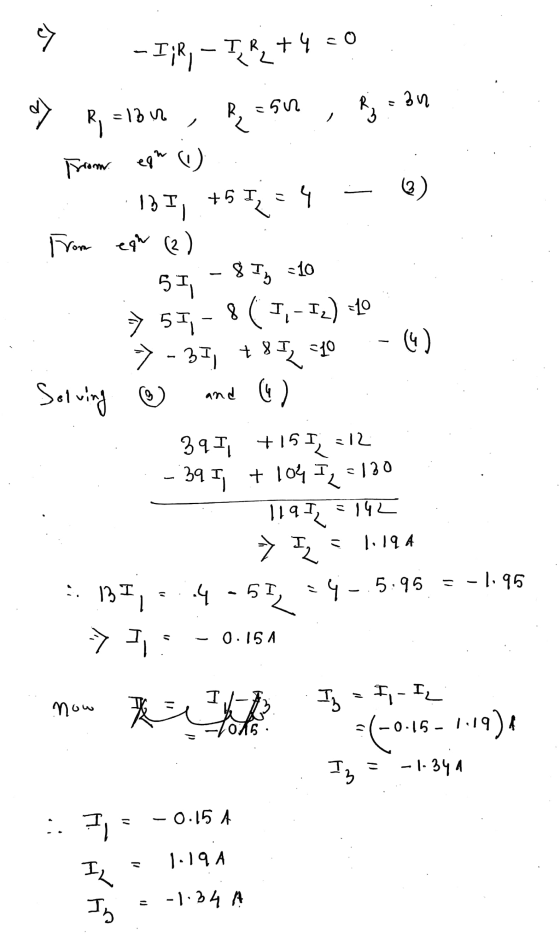 c) -I₁R₁ - I₂R₂ + 4 = 0
d) R₁ = 13 Ω , R₂ = 5Ω , R₃ = 3Ω
From eqⁿ (1)
13I₁ + 5I₂ = 4 — (3)
From eqⁿ (2)
5I₁ - 8I₃ = 10
⇒ 5I₁ - 8(I₁ - I₂) = 10
⇒ -3I₁ + 8I₂ = 10 - (4)
Solving (3) and (4)
39I₁ + 15I₂ = 12
- 39I₁ + 104I₂ = 130
119I₂ = 142
⇒ I₂ = 1.19 A
∴ 13I₁ = 4 - 5I₂ = 4 - 5.95 = -1.95
⇒ I₁ = - 0.15A
Now
I₃ = I₁ - I₂
= (-0.15 - 1.19) A
I₃ = -1.34 A
∴ I₁ = - 0.15 A
I₂ = 1.19 A
I₃ = -1.34 A